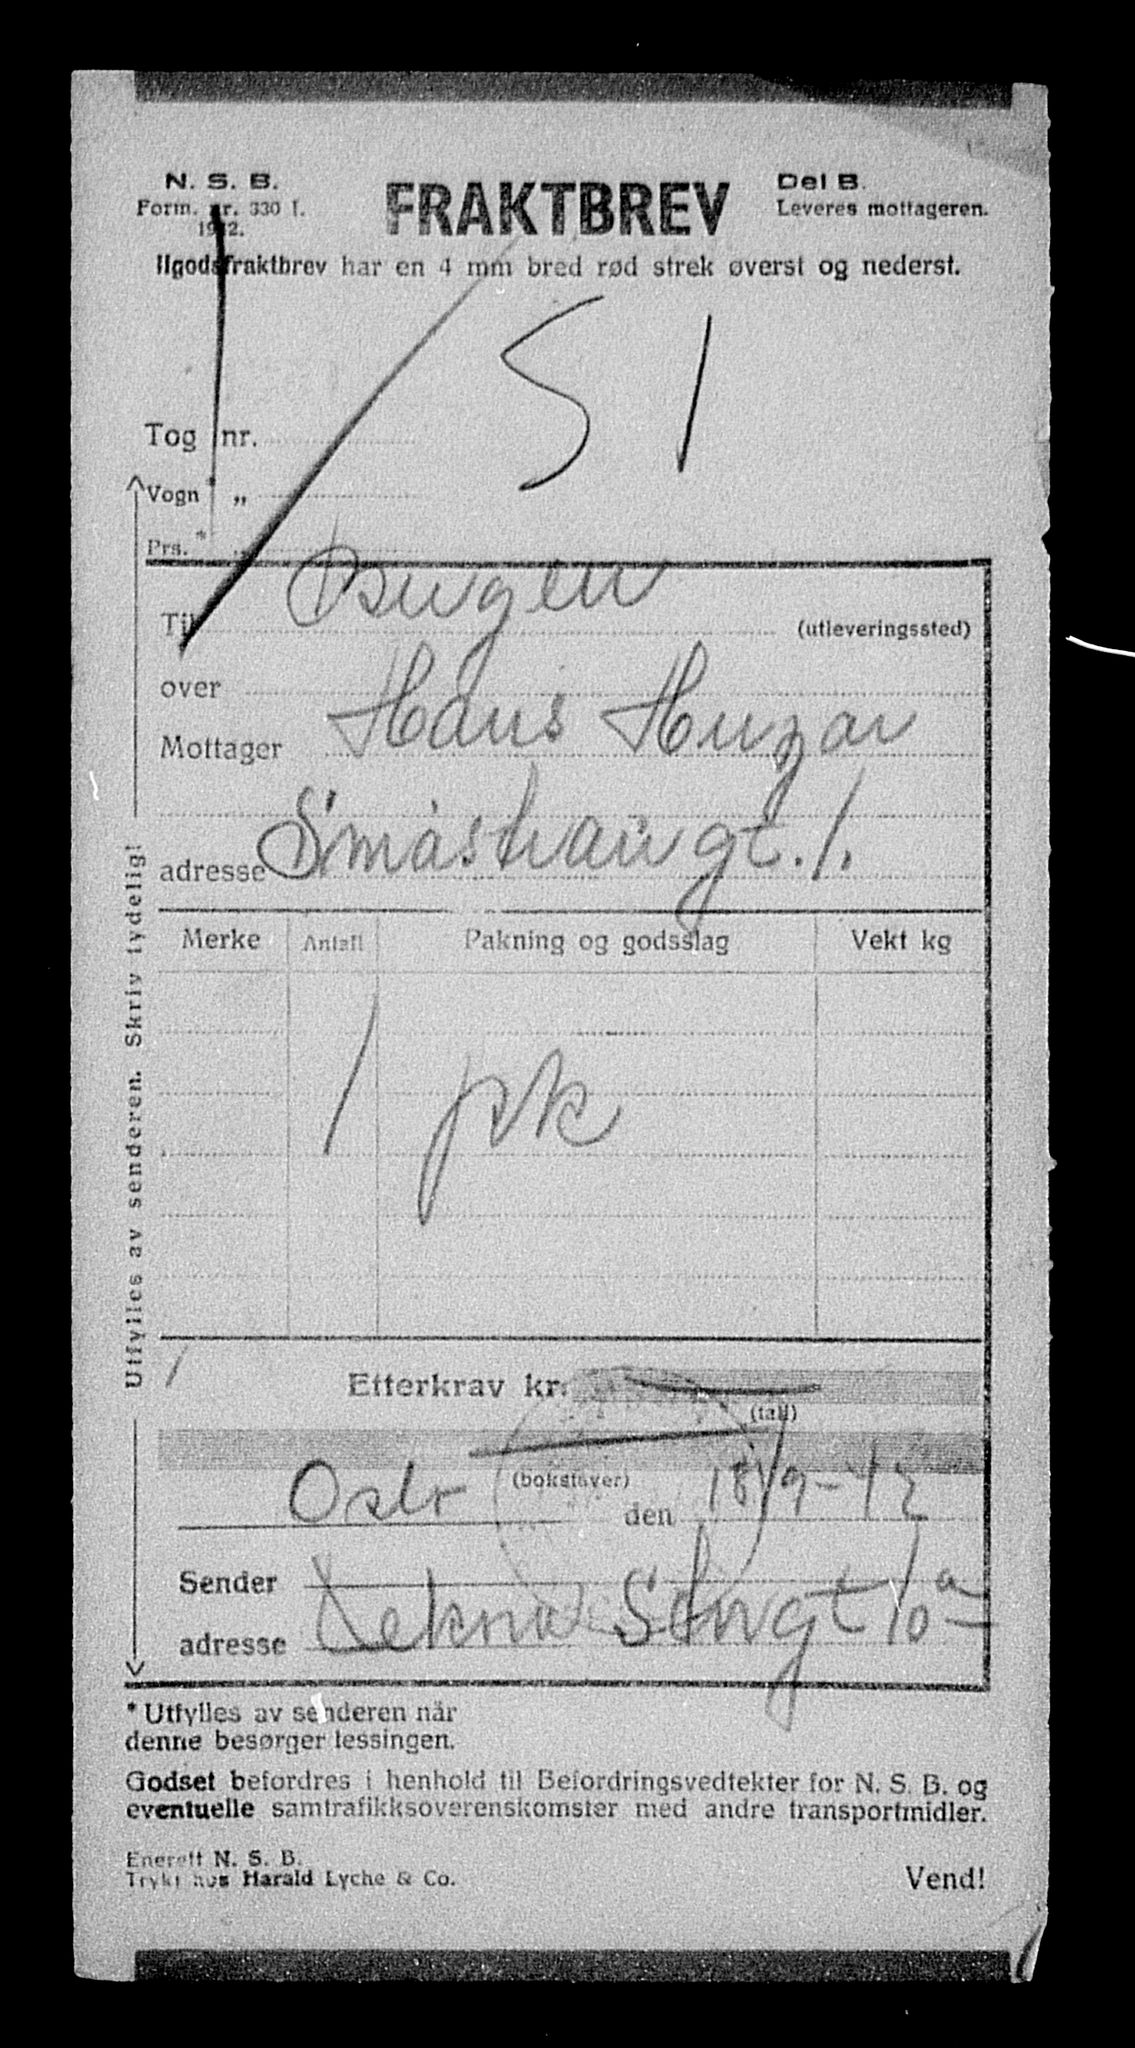 N. S. B.
Form. nr. 330 I.
1942.
FRAKTBREV
Del B.
Leveres mottageren.
Ilgodsfraktbrev har en 4 mm bred rød strek øverst og nederst.
51
Tog nr.
Vogn * „
Prs. * „
Til Bergen (utleveringssted)
over
Mottager Hans Huzar
adresse Småstrandgt. 1.
Merke Antall Pakning og godsslag Vekt kg
1 pk
Utfylles av senderen. Skriv tydelig!
Etterkrav kr.
(tall)
(bokstaver)
Oslo den 18/9-42
Sender
adresse
* Utfylles av senderen når
denne besørger lessingen.
Godset befordres i henhold til Befordringsvedtekter for N. S. B. og
eventuelle samtrafikksoverenskomster med andre transportmidler.
Enerett N. S. B.
Trykt hos Harald Lyche & Co.
Vend!